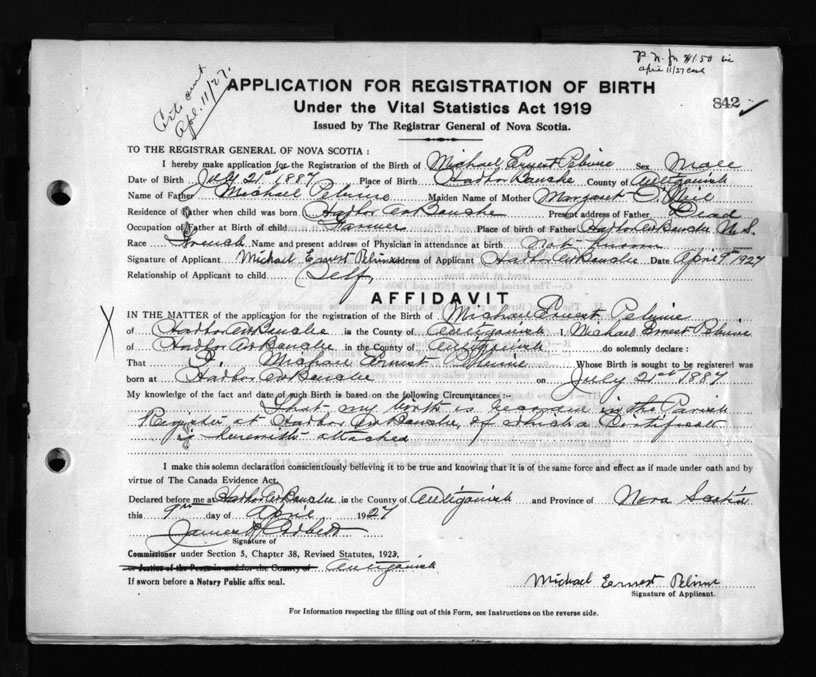 P.N. for $1.50 in
april 11/27 cash
Apl. 11/27.
APPLICATION FOR REGISTRATION OF BIRTH
842
Under the Vital Statistics Act 1919
Issued by The Registrar General of Nova Scotia.
TO THE REGISTRAR GENERAL OF NOVA SCOTIA :
I hereby make application for the Registration of the Birth of Michael Ernest Pelrine Sex Male
Date of Birth July 21st 1887 Place of Birth Harbor Au Bouche County of Antigonish
Name of Father Michael Pelrine Maiden Name of Mother Margaret
Residence of Father when child was born Harbor Au Bouche Present address of Father Dead
Occupation of Father at Birth of child Farmer Place of birth of Father Harbor Au Bouche N.S.
Race French Name and present address of Physician in attendance at birth Not known
Signature of Applicant Michael Ernest Pelrine Address of Applicant Harbor Au Bouche Date April 9th 1927
Relationship of Applicant to child Self
AFFIDAVIT
IN THE MATTER of the application for the registration of the Birth of Michael Ernest Pelrine
X of Harbor Au Bouche in the County of Antigonish I, Michael Ernest Pelrine
of Harbor Au Bouche in the County of Antigonish do solemnly declare :
That I. Michael Ernest Pelrine Whose Birth is sought to be registered was
born at Harbor Au Bouche on July 21st 1887
My knowledge of the fact and date of such Birth is based on the following Circumstances :-
That my birth is in the Parish
Register at Harbor Au Bouche, of which a Certificate
is herewith attached
I make this solemn declaration conscientiously believing it to be true and knowing that it is of the same force and effect as if made under oath and by
virtue of The Canada Evidence Act.
Declared before me at Harbor Au Bouche in the County of Antigonish and Province of Nova Scotia
this 9th day of April 1927
James Corbett
Signature of
Commissioner under Section 5, Chapter 38, Revised Statutes, 1923.
or Justice of the Peace in and for the County of Antigonish
If sworn before a Notary Public affix seal.
Michael Ernest Pelrine
Signature of Applicant.
For Information respecting the filling out of this Form, see Instructions on the reverse side.